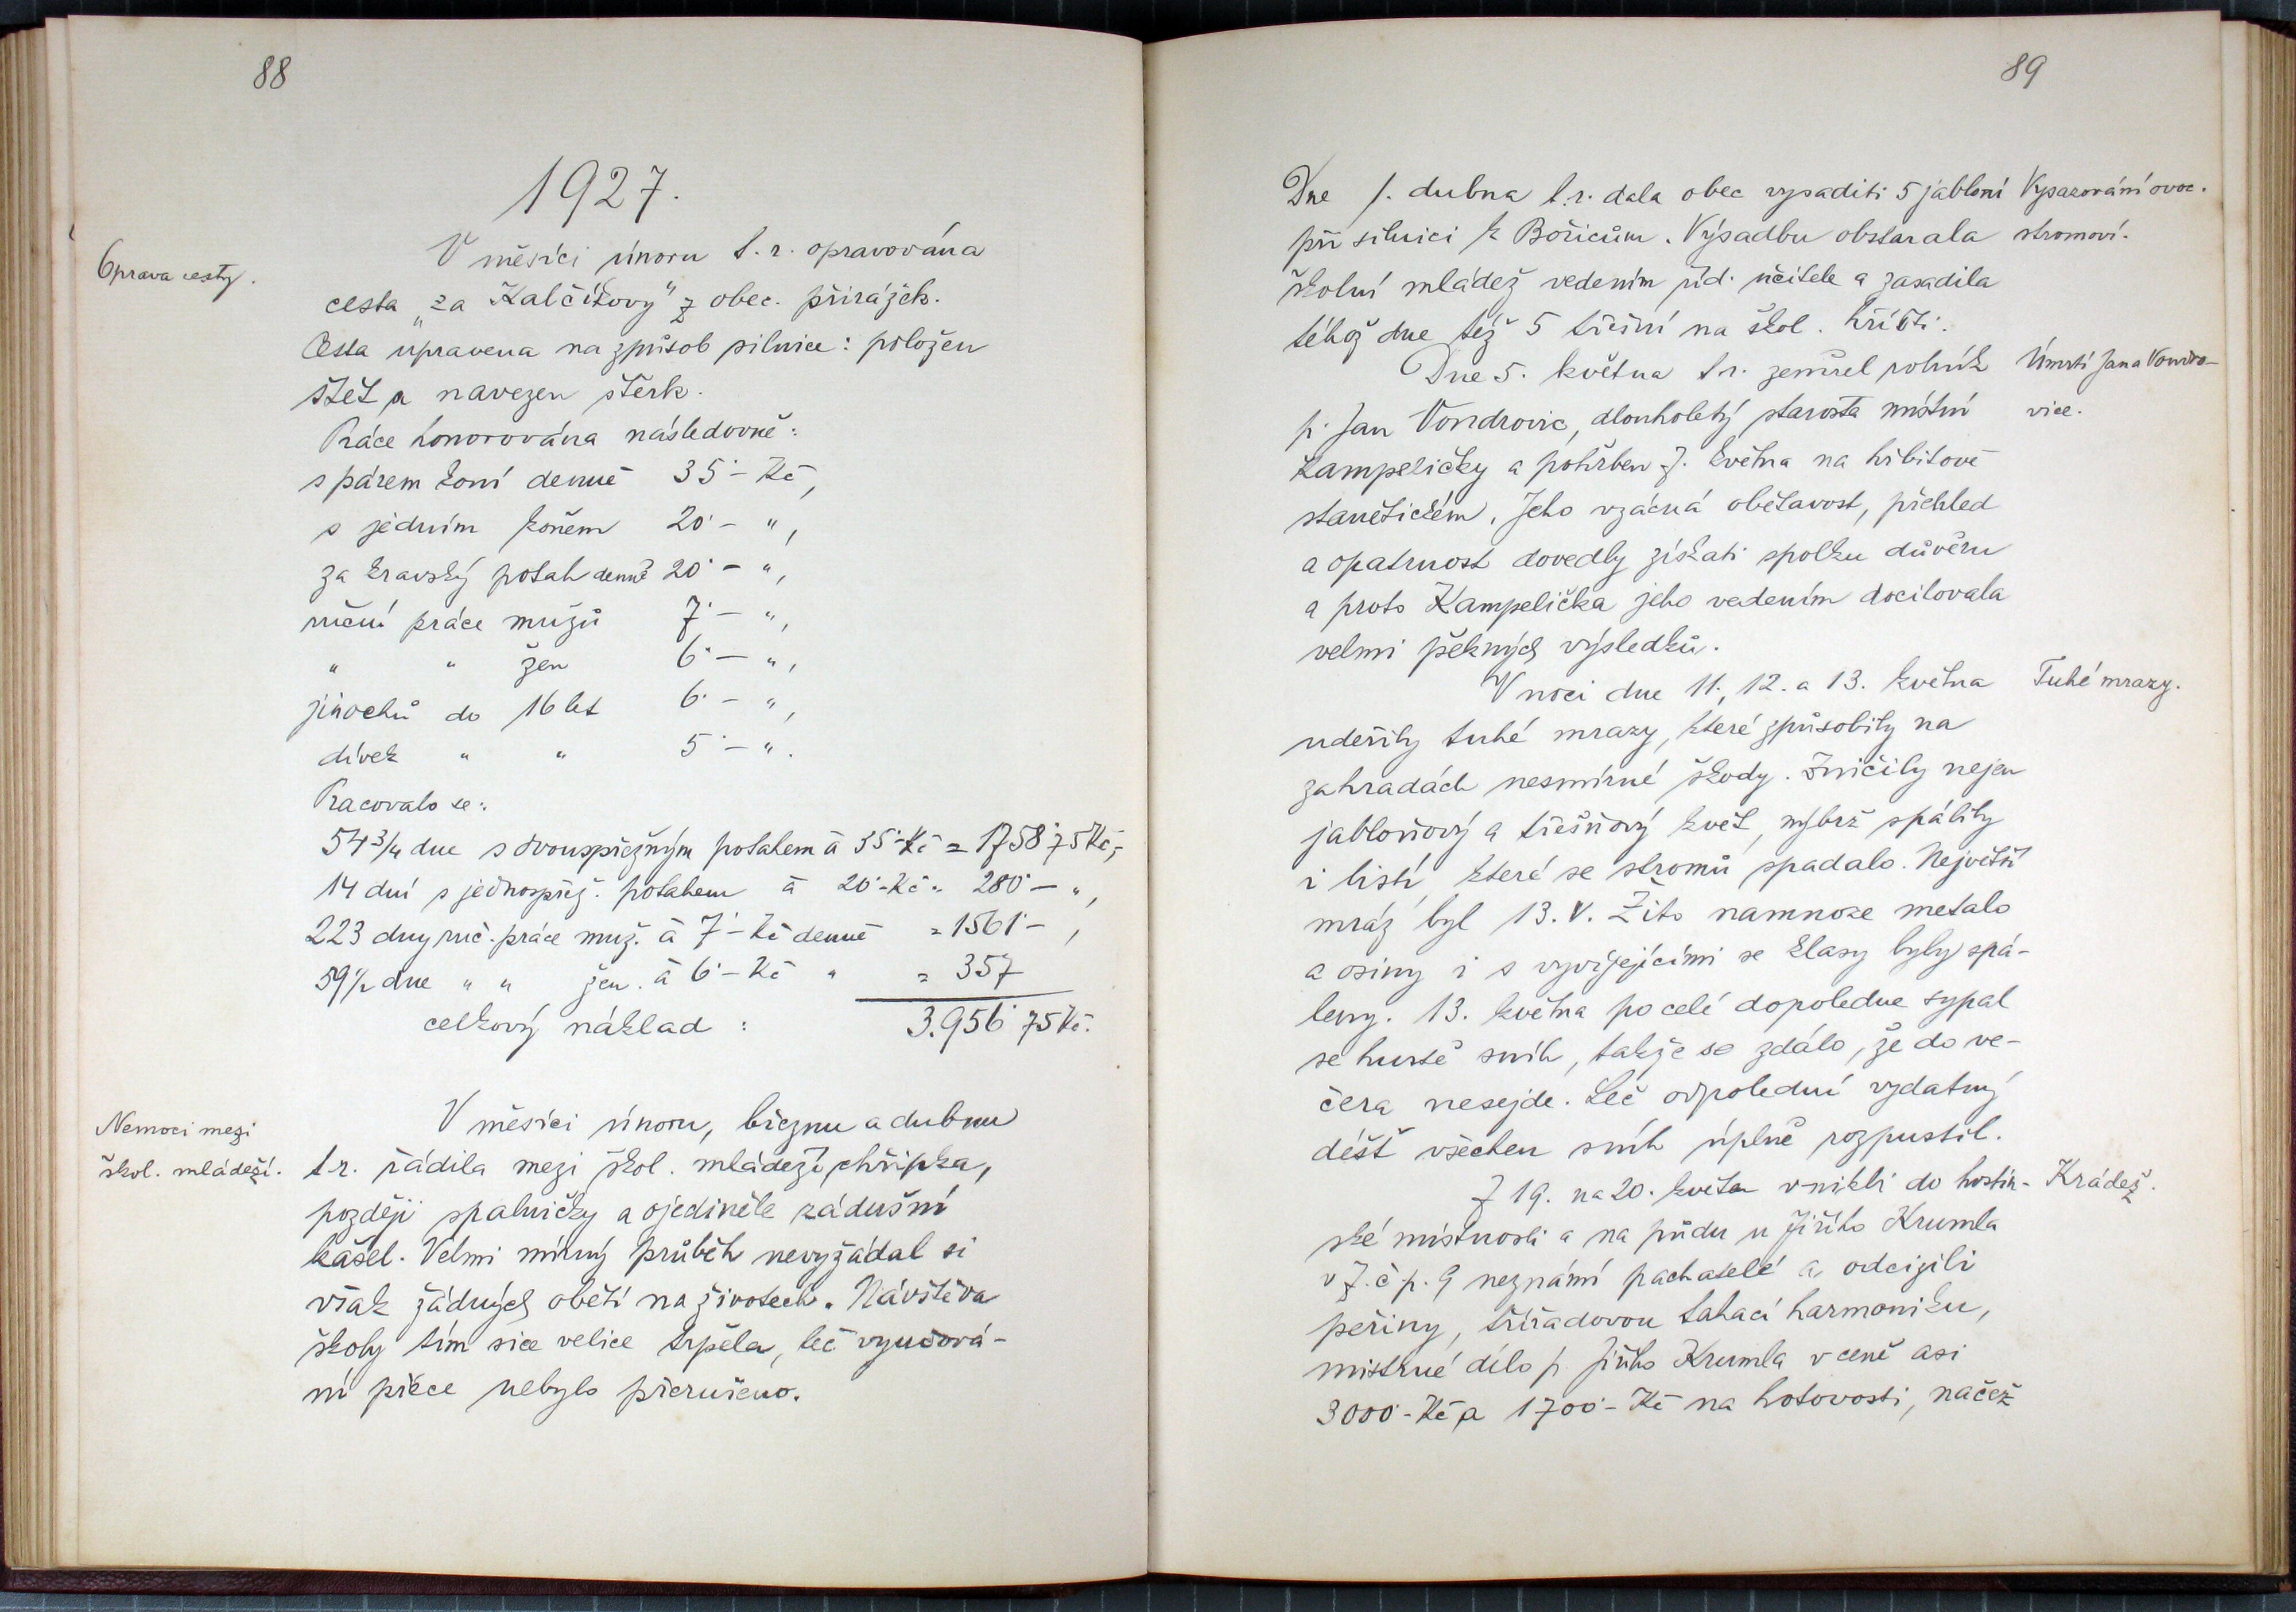 88
1927.
Oprava cesty.
V měsíci únoru t. r. opravována
cesta „za Kalčíkovy“ z obec. přirážek.
Cesta upravena na způsob silnice: položen
štět a navezen štěrk.
Práce honorována následovně:
s párem koní denně 35·– Kč,
s jedním koněm 20·– „,
za kravský potah denně 20·– „,
ruční práce mužů 7·– „,
„ „ žen 6·– „,
jinochů do 16 let 6·– „,
dívek „ „ 5·– „.
Pracovalo se:
54 3/4 dne s dvouspřežným potahem à 35·– Kč = 1758·75 Kč,
14 dní s jednospřež. potahem à 20·– Kč „ 280·– „,
223 dny ruč. práce muž. à 7·– Kč denně = 1561·– ,
59 1/2 dne „ „ žen. à 6·– Kč „ = 357
celkový náklad : 3.956·75 Kč.
Nemoci mezi
škol. mládeží.
V měsíci únoru, březnu a dubnu
t. r. řádila mezi škol. mládeží chřipka,
později spalničky a ojediněle zádušní
kašel. Velmi mírný průběh nevyžádal si
však žádných obětí na životech. Návštěva
školy tím sice velice trpěla, leč vyučová-
ní přece nebylo přerušeno.
89
Dne 1. dubna t. r. dala obec vysaditi 5 jabloní
při silnici k Bořicům. Výsadbu obstarala
školní mládež vedením říd. učitele a zasadila
téhož dne též 5 třešní na škol. hřišti.
Vysazování ovoc.
stromoví.
Dne 5. května t. r. zemřel rolník
p. Jan Vondrovic, dlouholetý starosta místní
Kampeličky a pohřben 7. května na hřbitově
stanětickém. Jeho vzácná obětavost, přehled
a opatrnost dovedly získati spolku důvěru
a proto Kampelička jeho vedením docilovala
velmi pěkných výsledků.
Úmrtí Jana Vondro-
vice.
V noci dne 11., 12. a 13. května
udeřily tuhé mrazy, které způsobily na
zahradách nesmírné škody. Zničily nejen
jabloňový a třešňový květ, nýbrž spálily
i listí, které se stromů spadalo. Největší
mráz byl 13. V. Žito namnoze metalo
a osiny i s vyvíjejícími se klasy byly spá-
leny. 13. května po celé dopoledne sypal
se hustě sníh, takže se zdálo, že do ve-
čera nesejde. Leč odpolední vydatný
déšť všechen sníh úplně rozpustil.
Tuhé mrazy.
Z 19. na 20. květa vnikli do hostin-
ské místnosti a na půdu u Jiřího Krumla
v Z. č. p. 9 neznámí pachatelé a odcizili
peřiny, třířadovou tahací harmoniku,
mistrné dílo p. Jiřího Krumla v ceně asi
3000·– Kč a 1700·– Kč na hotovosti, načež
Krádež.